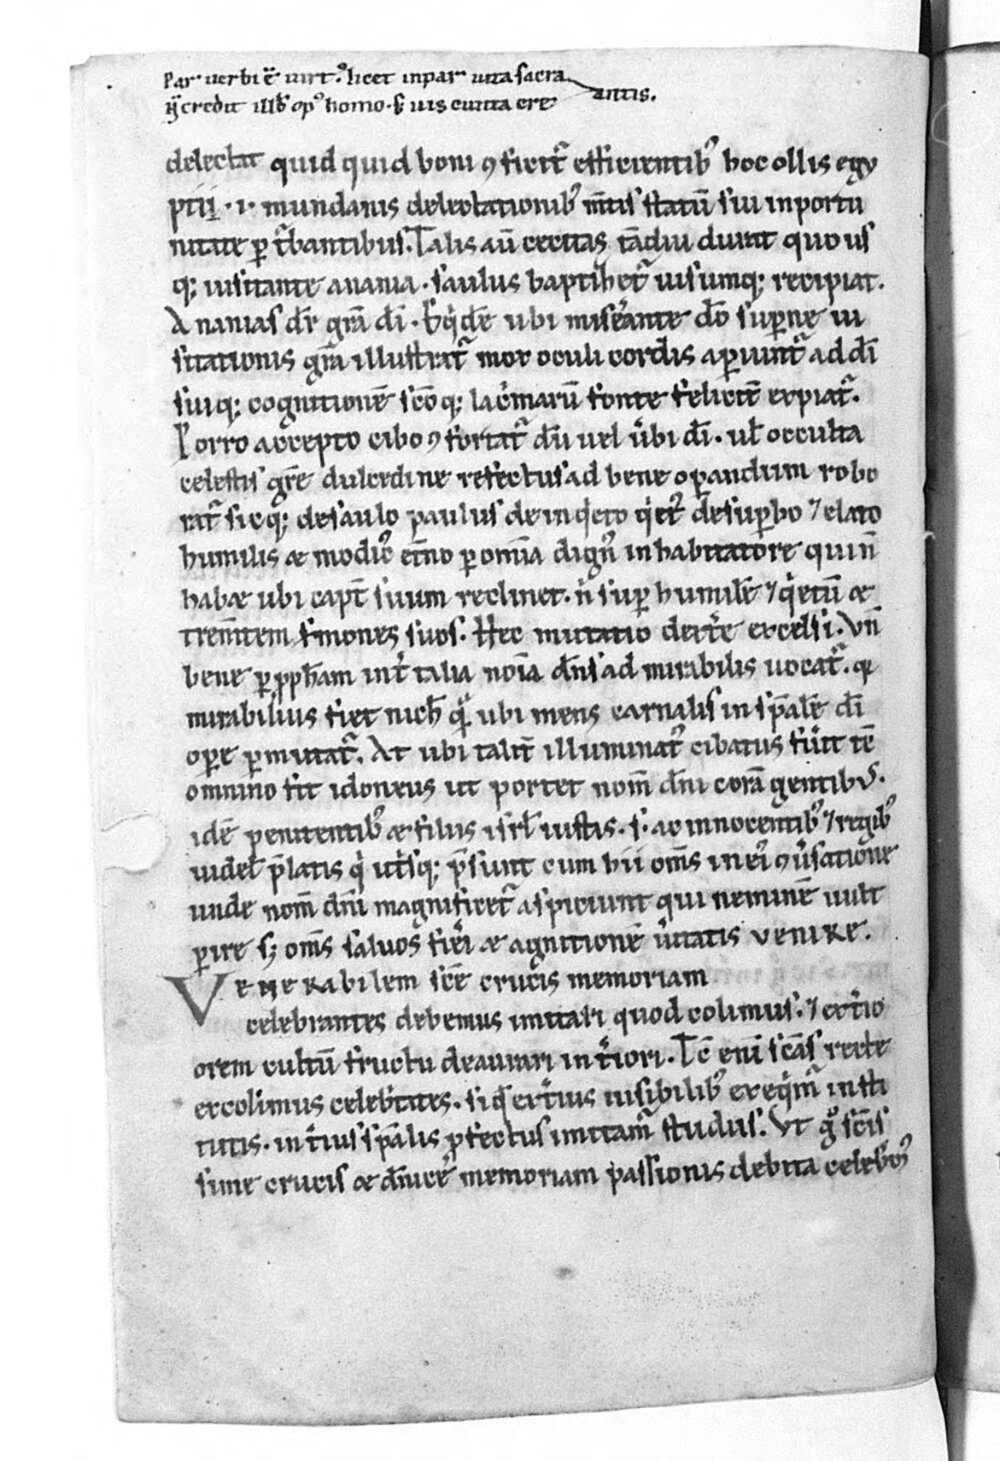 Par uerbi ē uirt᷒ licet inpar uita sacra
antis.
q̄ credit illi᷒ op᷒ homo · s̄ uis cuncta cre
delectat quid quid boni ꝯficit᷑ efficientib᷒ hoc ollis egy
ptii · i · mundanis delectationib᷒ m̄tis statū sui inportu
nitate ꝑt᷑bantibus. Talis aū cecitas tādiu durat quo us
q; uisitante anania · saulus baptizet᷑ uisumq; recipiat.
Ananias dr̄ gr̄a dī · Siq̇dē ubi miserante dō superne ui
sitationis gr̄a illustrat᷑ mox oculi cordis aꝑiunt᷑ ad dī
suiq; cognitionē scō q; lacrimarū fonte feliciē expiat᷑.
Porro accepto cibo ꝯfortat᷑ dū uel ůbi dī · ul̄ occulta
celestis gr̄e dulcedine refectus ad bene oꝑandum robo
rat᷑ sicq; de saulo paulus de inq̇eto q̇et᷒ de suꝑbo ⁊ elato
humilis æ modic᷒ etn̄o ꝑ om̄ia dign᷒ inhabitatore qui n̄
habæ ubi capt̄ suum reclinet · n̄ suꝑ humilē ⁊ q̇etū æ
trem̄tem sermones suos. Hec mutatio dexterę excelsi. Vn̄
bene ꝑ ꝓph̄am int̓ talia noīa dn̄s admirabilis uocat᷑. q̇
mirabilius fiet nich̄ q̇ ubi mens carnalis in sp̄alē dī
oꝑe ꝑmutat᷑. At ubi talit̄ illuminat᷒ cibatus fůit tē
omnino fit idoneus ut portet nom̄ dn̄i corā gentibus.
idē penitentib᷒ æ filus isrl̄ iustis · s · ac innocentib᷒ ⁊ regib᷒
uidet p̄latis q̇ ut̓sq; p̄sunt cum hii om̄s in ei᷒ ꝯůsatione
unde nom̄ dn̄i magnificet᷑ aspiciunt qui neminē uult
ꝑire s; om̄s saluos fieri æ agnitionē ůitatis VENIRE.
VENERAbilem scē crucis memoriam
celebrantes debemus imitari quod colimus. ⁊ ext̓io
orem cultū fructu deaurari in t̓iori. Tē enī scās recte
excolimus celebritates. si qd̄ ext̓ius uisibilib᷒ exeq̇m᷑ insti
tutis. int̓ius sp̄alis ꝓfectus imitam᷑ studiis. Vt g̊ scīs
sime crucis æ dn̄ice memoriam passionis debita celebr᷒